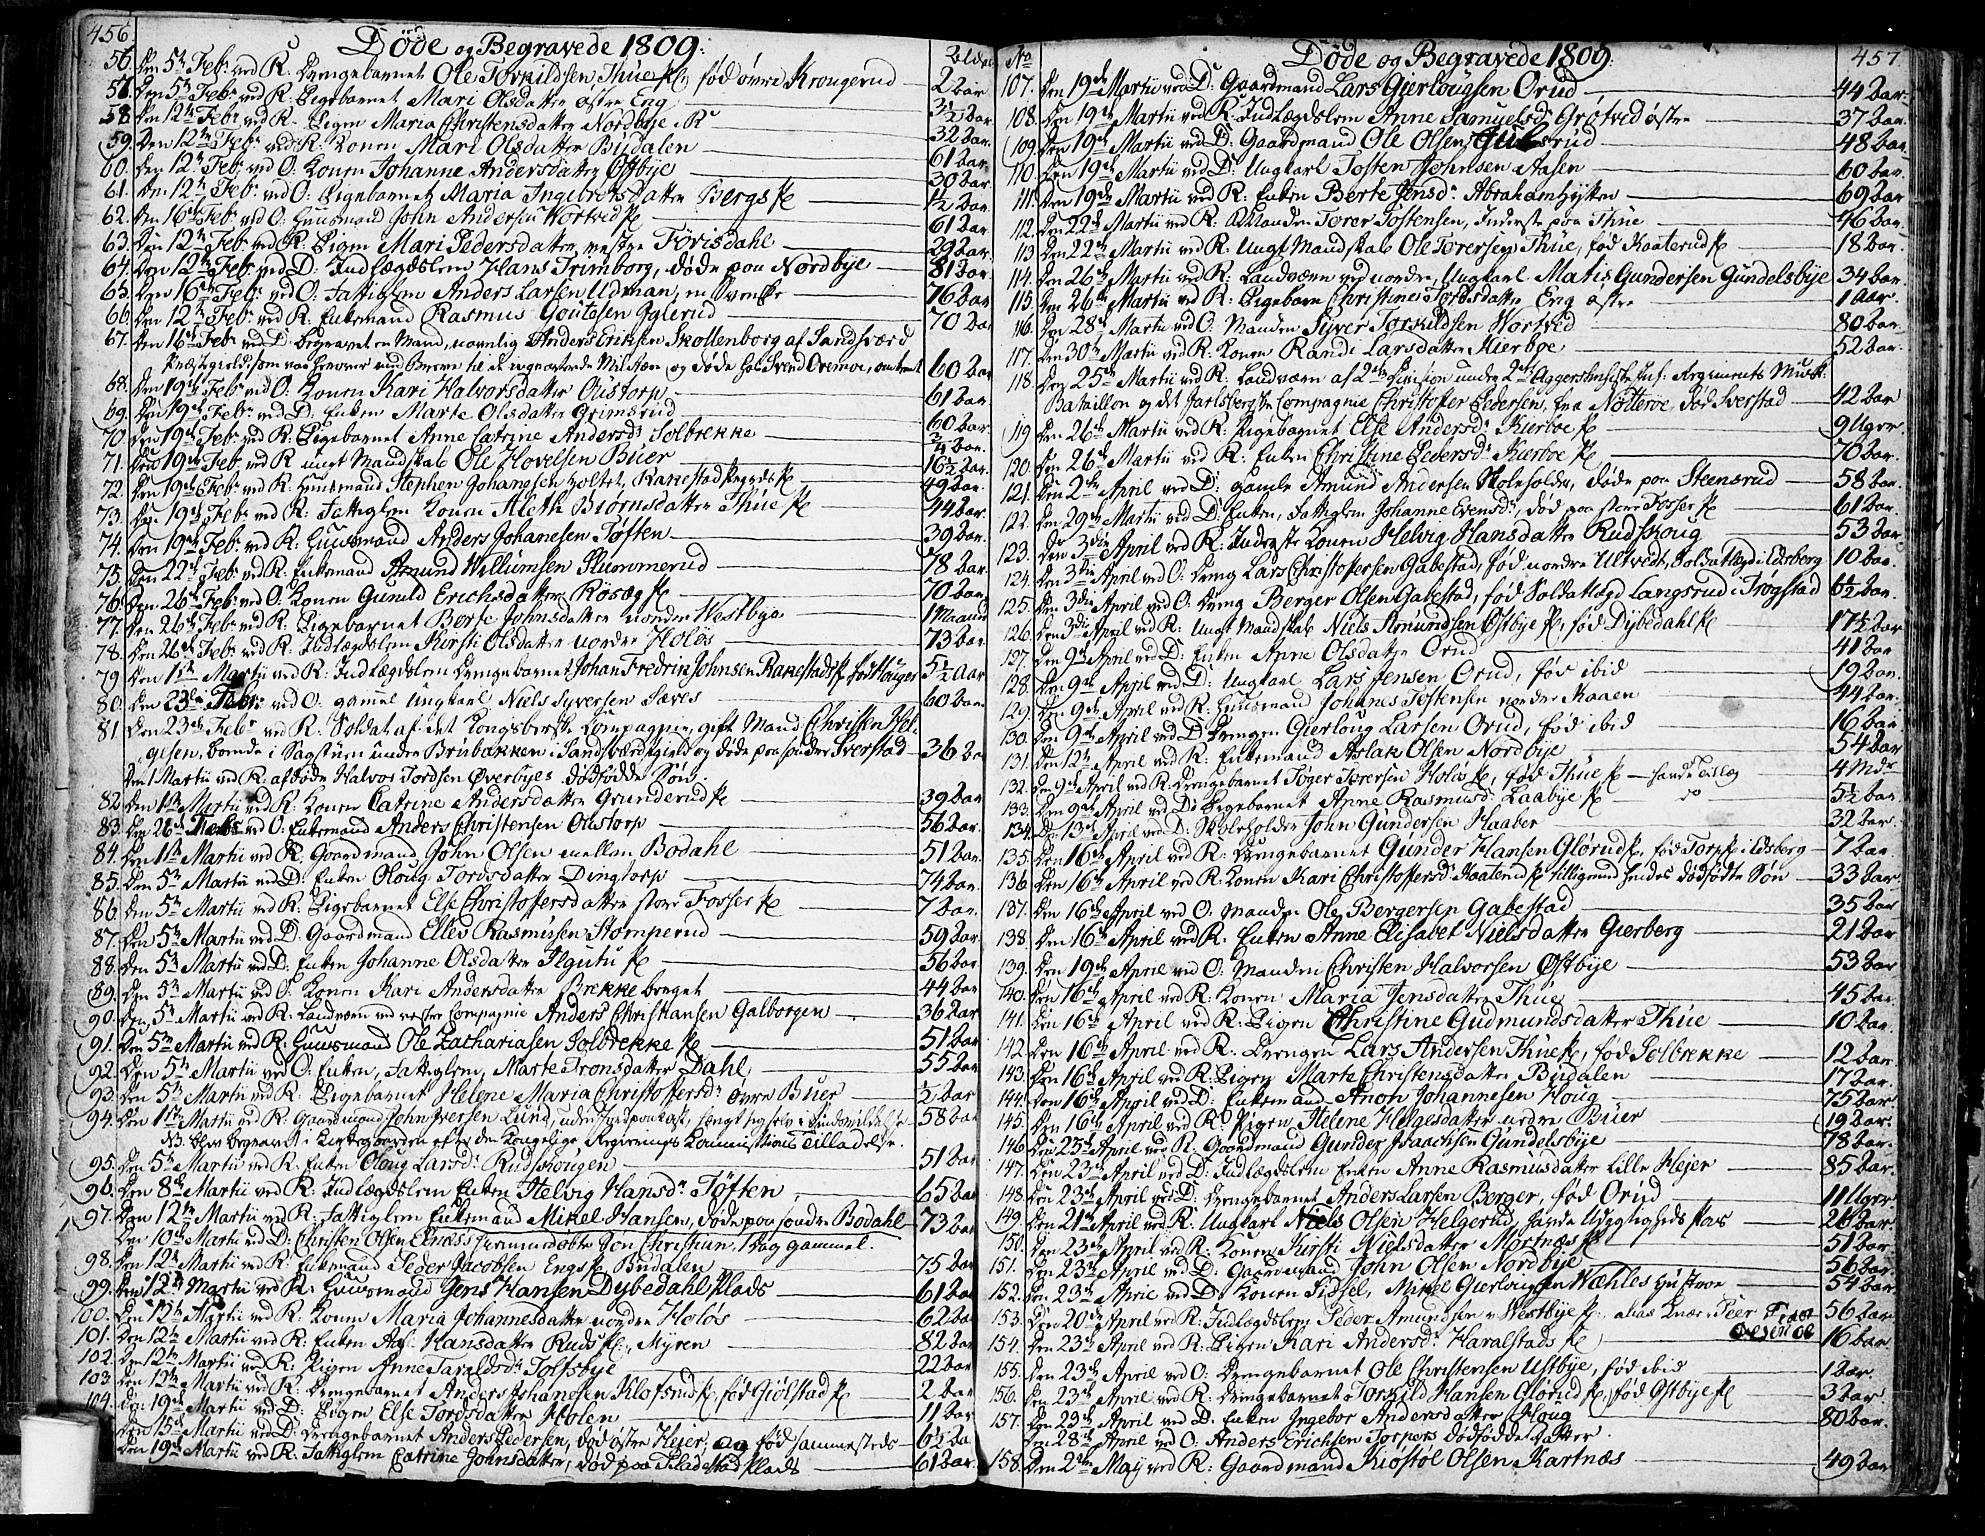 456.
Döde og Begravede 1809.
56. Den 5te Febr ved R: Drengebarnet Ole Torkildsen Thue pl: fød övre Krongerud — 2 aar
57. Den 5te Febr ved R: Pigebarnet Mari Olsdatter østre Eng — 3½ aar
58. Den 12te Febr ved R. Pigen Maria Christensdatter Nordbye — 32 aar
59. Den 12te Febr ved R: Konen Mari Olsdatter Budalen — 61 aar
60. Den 12te Febr ved O: Konen Johanne Andersdatter Østbye — 30 aar
61. Den 12te Febr ved O: Pigebarnet Maria Ingebretsdatter Bergs pl — ½ aar
62. Den 16de Febr ved O: Huusmand John Andersen Vortved pl — 61 aar
63. Den 12te Febr ved R: Pigen Mari Pedersdatter, vestre Forisdahl — 29 aar
64. Den 12te Febr ved D: Indlægdslem Hans Trimborg, døde paa Nordbye — 81 aar
65. Den 16de Febr ved O: Fattiglem Anders Larsen Udman, en Svenske — 76 aar
66. Den 12te Febr ved R: Enkemand Rasmus Goutesen Iglerud — 70 aar
67. Den 16de Febr ved D: begravet en Mand, navnlig Anders Eriksen Skollenborg af Sandsværd
Præstegield, som var og døde hos Svend omtrent 60 aar
68. Den 19de Febr ved O: Konen Kari Halvorsdatter Oustorp — 61 aar
69. Den 19de Febr ved D: Enken Marte Olsdatter Grimsrud — 60 aar
70. Den 19de Febr ved R: Pigebarnet Anne Catrine Andersdr Solbrekke — ¾ aar
71. Den 19de Febr ved R ungt Mandskab Ole Hovelsen Buer — 16½ aar
72. Den 19de Febr ved R: Huusmand Stephen Johannesen Holtet, Rakestad — 49 aar
73. Den 19de Febr ved R: Fattiglem Konen Aleth Biørnsdatter Thue pl — 44 aar
74. Den 19de Febr ved R: Huusmand Anders Johannesen Tøften — 39 aar
75. Den 22de Febr ved R: Enkemand Amund Willumsen Slummerud — 78 aar
76. Den 26de Febr ved O: Konen Gunild Erichsdatter Røsæg pl — 70 aar
77. Den 26de Febr ved R: Pigebarnet Berte Johnsdatter nordre Westbye — 1 Maaned
78. Den 26de Febr ved R: Indlægdslem Kiersti Olsdatter nordre Holøs — 73 aar
79. Den 1ste Martii ved R: Indlægdslem Drengebarnet Johan Fredrik Johnsen Rakestads pl. fød Houger — 5½ aar
80. Den 23de Febr: ved O: gammel Ungkarl Niels Syversen Saxes — 60 aar
81. Den 23de Febr ved R: Soldat af det Kongsbergske Compagnie, gift Mand Christen Hel-
gesen, boende i Sagstuen under Brubakken i Sandsværd gield og døde paa søndre Sverstad — 36 aar
Den 1 Martii ved R. afdøde Halvor Tordsen Øverbyes dødfødde Søn.
82. Den 1ste Martii ved R: Konen Catrine Andersdatter Grunderud pl — 39 aar
83. Den 26de Febr ved O: Enkemand Anders Christensen Oustorp — 56 aar
84. Den 1ste Martii ved R. Gaardmand John Olsen mellem Bodahl — 51 aar
85. Den 5te Martii ved D: Enken Oloug Tordsdatter Dingtorp — 74 aar
86. Den 5te Martii ved R: Pigebarnet Else Christophersdatter store Fosser pl — 7 aar
87. Den 5te Martii ved D: Gaardmand Ellev Rasmusen Stomperud — 59 aar
88. Den 5te Martii ved D: Enken Johanne Olsdatter Ilgutu pl — 56 aar
89. Den 5te Martii ved O: Konen Kari Andersdatter Brekke — 44 aar
90. Den 5te Martii ved R: Landværn ved Compagnie Anders Christiansen Galborgen — 36 aar
91. Den 5te Martii ved R: Huusmand Ole Zachariasen Solbrekke pl — 51 aar
92. Den 5te Martii ved O: Enken, Fattiglem, Marte Tronsdatter Dahl — 55 aar
93. Den 5te Martii ved R: Pigebarnet Helene Maria Christophersdr øvre Buer — ½ aar
94. Den 1ste Martii ved R: Gaardmand John Iversen Lund, hængt sig selv i Sindsvildelse — 58 aar
NB: blev begravet i Kirkegaarden efter den kongelige Regierings Kommissions Tilladelse.
95. Den 5te Martii ved R: Enken Oloug Larsdr Rudskougen — 51 aar
96. Den 8de Martii ved R: Indlægdslem Enken Helvig Hansdr Tøften — 65 aar
97. Den 12te Martii ved R: Fattiglem Enkemand Mikel Hansen, døde paa søndre Bodahl — 73 aar
Den 10de Martii ved D: Christen Olsen hiemmedøbte Søn Christian, 1 Dag gammel.
98. Den 12te Martii ved R: Enkemand Peder Jacobsen Engs pl Budalen — 75 aar
99. Den 12te Martii ved R: Huusmand Jens Hansen Dybedahl plads — 61 aar
100. Den 12te Martii ved R: Konen Maria Johannesdatter nordre Holøs — 62 aar
101. Den 12te Martii ved R: Enken Hansdatter Ruds pl, Myren — 82 aar
102. Den 12te Martii ved R: Pigen Anne Taraldsdr Solfsbye — 22 aar
103. Den 12te Martii ved R: Drengebarnet Anders Johannesen Klofsrud pl, fød Giølstad pl — 2 aar
104. Den 19de Martii ved D: Pigen Else Tordsdatter Holen — 11 aar
Den 15de Martii ved D: Drengebarnet Anders Pedersen, død østre Heier, og fød sammesteds — 6½ aar
Den 19de Martii ved R: Fattiglem Catrine Johnsdatter, død paa Sladestad plads — 61 aar
457
No Döde og Begravede 1809.
107. Den 19de Martii ved D: Gaardmand Lars Gierlougsen Orud — 44 aar
108. Den 19de Martii ved R: Indlægdslem Anne Samuelsdr Grøtved østre — 37 aar
109. Den 19de Martii ved D: Gaardmand Ole Olsen Gulsrud — 48 aar
110. Den 19de Martii ved D: Ungkarl Tosten Johnsen Aasen — 60 aar
111. Den 19de Martii ved R: Enken Berte Jonsdr Abrahamhytten — 69 aar
112. Den 22de Martii ved R: Manden Torer Tostensen, Inderste paa Thue — 46 aar
113. Den 22de Martii ved R: Ungt Mandskab Ole Torersen Thue, fød Kaaterud pl — 18 aar
114. Den 26de Martii ved R: Landværn ved nordre, Ungkarl Matis Gundersen Gundelsbye — 34 aar
115. Den 26de Martii ved R: Pigebarn Christine Tordsdatter Eng østre — 1 aar
116. Den 28de Martii ved O: Manden Syver Torkildsen Vortved — 80 aar
117. Den 30te Martii ved R: Konen Randi Larsdatter Kierboe — 52 aar
118. Den 25de Martii ved R: Landværn af 2den Division under 2det Aggershusiske Inf: Regiments Musk:
Bataillon og det Jarlsbergske Compagnie Christopher Pedersen, fra Nøtterøe, død Sverstad — 42 aar
119. Den 26de Martii ved R: Pigebarnet Else Andersdr Kierboe pl — 9 Uger
120. Den 26de Martii ved R: Enken Christine Pedersdr Kierboe pl — 70 aar
121. Den 2den April ved D: gamle Amund Andersen Skoleholder, døde paa Steensrud — 58 aar
122. Den 29de Martii ved D: Enken, Fattiglem Johanne Evensdr, død paa store Fosser pl — 61 aar
123. Den 3die April ved R: Inderste Konen Helvig Hansdatter Rudskoug — 53 aar
124. Den 3die April ved O: Dreng Lars Christophersen Gabestad, fød nordre Ultvedt, Soldatlægd i Edsberg — 10 aar
125. Den 3die April ved O: Dreng Berger Olsen Gabestad, fød Soldatlægd Langsrud i Trogstad — 6½ aar
126. Den 3die April ved R: Ungt Mandskab Niels Amundsen Østbye pl, fød Dybedahl pl — 17½ aar
127. Den 9de April ved D: Enken Anne Olsdatter Orud — 41 aar
128. Den 9de April ved D: Ungkarl Lars Jensen Orud, fød ibid — 19 aar
129. Den 9de April ved R: Huusmand Johannes Tostensen nordre Raaen — 44 aar
130. Den 9de April ved D: Drengen Gierloug Larsen Orud, fød ibid — 16 aar
131. Den 12te April ved R: Enkemand Aslak Olsen Nordbye — 54 aar
132. Den 9de April ved R: Drengebarnet Toger Torersen Holøs pl, fød Thue pl — — 4 Mdr
133. Den 9de April ved D: Pigebarnet Anne Rasmusdr Laabye pl — do — 5½ aar
134. Den 13de April ved D: Skoleholder John Gundersen Haaber — 32 aar
135. Den 16de April ved R: Drengebarnet Gunder Hansen Glørud pl, fød Torp pl Edsberg — 7 aar
136. Den 16de April ved R: Konen Kari Christophersdr Kaaterud pl tilligemed hendes dødfødte Søn — 33 aar
137. Den 16de April ved O: Manden Ole Bergersen Gabestad — 35 aar
138. Den 16de April ved R: Enken Anne Elisabet Nielsdatter Gierberg — 21 aar
139. Den 19de April ved O: Manden Christen Halvorsen Østbye — 53 aar
140. Den 16de April ved R: Konen Maria Jensdatter Thue — 45 aar
141. Den 16de April ved R: Pigen Christine Gudmundsdatter Thue — 10 aar
142. Den 16de April ved R: Drengen Lars Andersen Thue pl, fød Solbrekke — 12 aar
143. Den 16de April ved R: Pigen Marte Christensdatter Budalen — 17 aar
144. Den 16de April ved D: Enkemand Anon Johannesen Houg — 75 aar
145. Den 16de April ved R: Pigen Helene Helgesdatter nedre Buer — 19 aar
146. Den 25de April ved R: Gaardmand Gunder Isaachsen Gundelsbye — 78 aar
147. Den 23de April ved D: Indlægdslem Enken Anne Rasmusdatter Lille Heier — 85 aar
148. Den 23de April ved D: Drengebarnet Anders Larsen Berger, fød Orud — 11 Uger
149. Den 21de April ved R: Ungkarl Niels Olsen Helgerud, havde Udygtigheds Pas — 26 aar
150. Den 23de April ved R: Konen Kirsti Nielsdatter Mortnæs pl — 51 aar
151. Den 23de April ved D: Gaardmand John Olsen Nordbye — 56 aar
152. Den 23de April ved D: Konen Sidsel, Mikel Gierlougsen Wæhles Hustroe — 54 aar
153. Den 20de April ved R: Indlægdslem Peder Amundsen Westbye pl, alias Knæ: Peer — 56 aar
154. Den 23de April ved R: Pigen Kari Andersdr Haralstads pl — 16 aar
155. Den 23de April ved O: Drengebarnet Ole Christensen Østbye, fød ibid — 1 aar
156. Den 23de April ved R: Drengebarnet Torkild Hansen Glørud pl, fød Østbye pl — 3 aar
157. Den 23de April ved D: Enken Ingebor Andersdatter Houg — 80 aar
Den 28de April ved O: Anders Erichsen Torpers dødfødde Datter.
158. Den 2den Maj ved R: Gaardmand Kiøstol Olsen Kartnæs — 49 aar